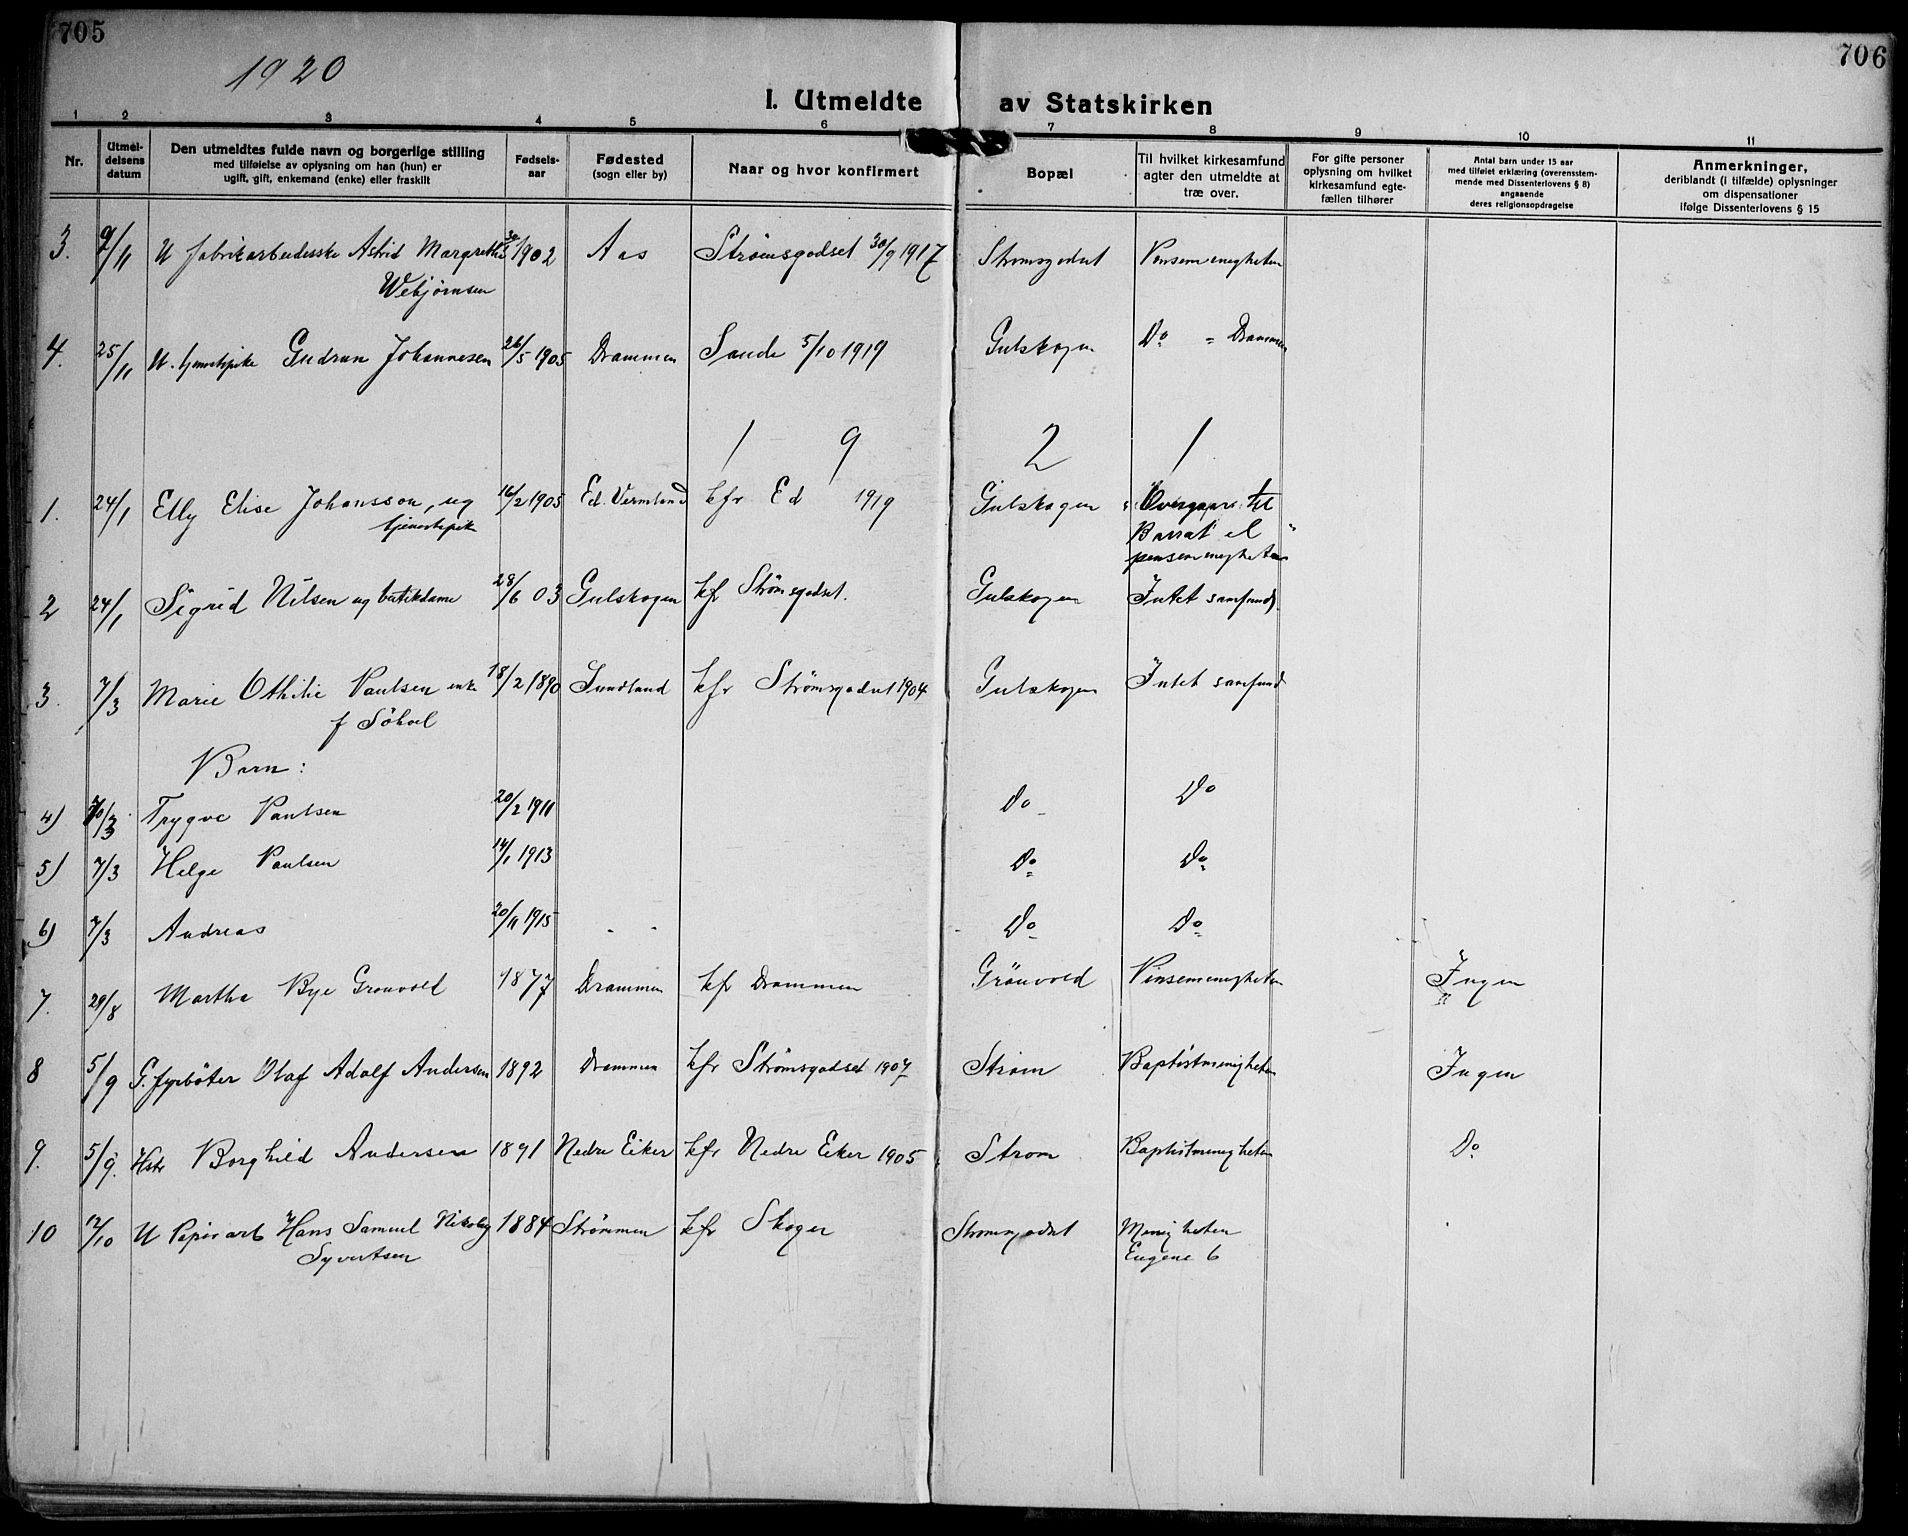 705
706
1920
I. Utmeldte av Statskirken
1 2 3 4 5 6 7 8 9 10 11
Nr.
Utmel-
delsens
datum
Den utmeldtes fulde navn og borgerlige stilling
med tilføielse av oplysning om han (hun) er
ugift, gift, enkemand (enke) eller fraskilt
Fødsels-
aar
Fødested
(sogn eller by)
Naar og hvor konfirmert
Bopæl
Til hvilket kirkesamfund
agter den utmeldte at
træ over.
For gifte personer
oplysning om hvilket
kirkesamfund egte-
fællen tilhører
Antal barn under 15 aar
med tilføiet erklæring (overensstem-
mende med Dissenterlovens § 8)
angaaende
deres religionsopdragelse
Anmerkninger,
deriblandt (i tilfælde) oplysninger
om dispensationer
ifølge Dissenterlovens § 15
3. 9/11 U fabrikarbeiderske Astrid Margrethe 1902 Aas Strømsgodset 30/9 1917 Strømsgodset Pinsemenigheten
Webjørnsen
4. 25/11 U. tjenestepike Gudrun Johannesen 26/5 1905 Drammen Sande 5/10 1919 Gulskogen Do = Drammen
1 9 2 1
1. 24/1 Elly Elise Johansson, ug 16/2 1905 Ed. Vermland kfr Ed 1919 Gulskogen Overgaar til
tjenestepik Barrat el
pinsemenigheten
2 24/1 Sigrid Nilsen ug butikdame 28/6 03 Gulskogen kfr Strömsgodset. Gulskogen Intet samfund
3. 7/3 Marie Othilie Paulsen enke 18/2 1890 Sundland kfr Strømsgodset 1904 Gulskogen Intet samfund
f Søhol
Barn:
4) 7/3 Trygve Paulsen 20/2 1911 Do Do
5) 7/3 Helge Paulsen 14/1 1913 Do Do
6) 7/3 Andreas 20/11 1915 Do Do
7. 29/8 Martha Bye Gronvold 1877 Drammen kfr Drammen Grönvold Pinsemenigheten Ingen
8 5/9 G. fyrböter Olaf Adolf Andersen 1892 Drammen kfr Strømsgodset 1907 Strøm Baptistmenigheten Ingen
9. 5/9. Hstr Borghild Andersen 1891 Nedre Eiker kfr Nedre Eiker 1905 Strøm Baptistmenigheten Do
10 12/10 U Papirarb Hans Samuel Nikolay 1884 Strømmen kfr Skoger Strømsgodset Menigheten
Syvertsen Eugene 6